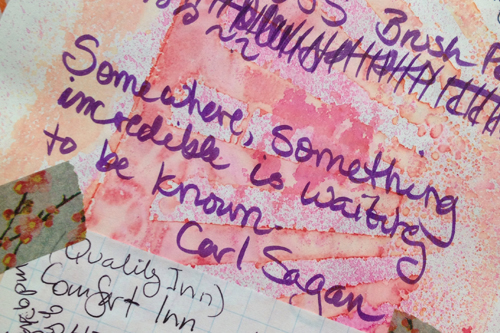 Brush
Somewhere, something
incredible is waiting
to be known.
Carl Sagan
(Quality Inn)
Comfort Inn